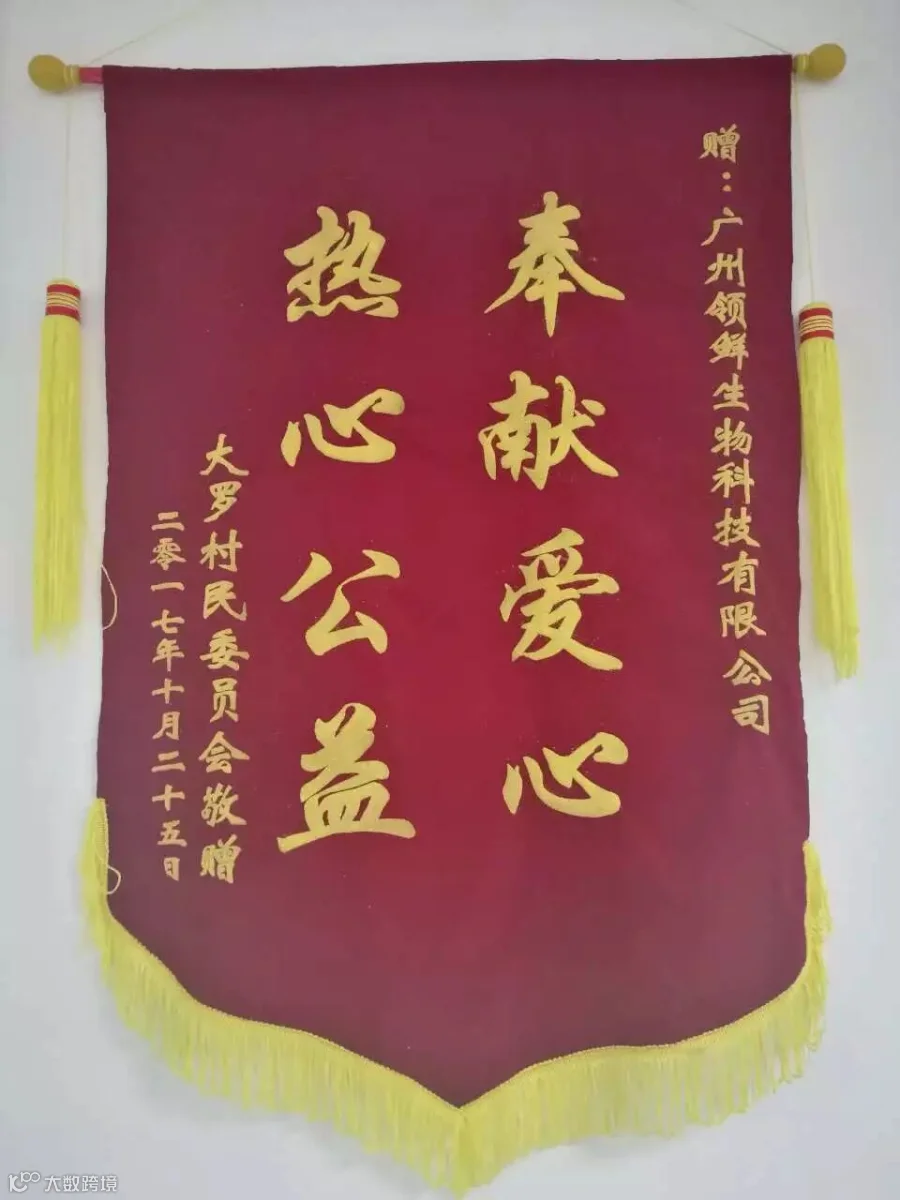 赠：广州领鲜生物科技有限公司
奉献爱心
热心公益
大罗村民委员会敬赠
二零一七年十月二十五日
大数跨境